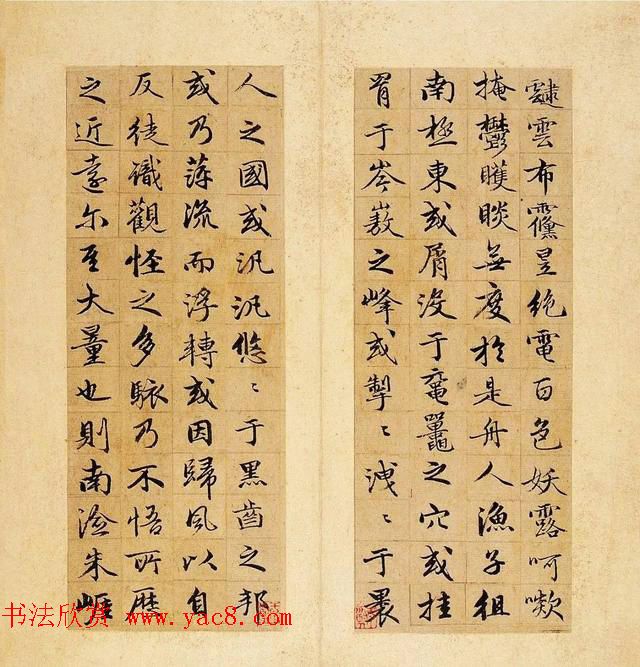 靆雲布䨴昱絕電百色妖露呵
掩鬱矆睒無度於是舟人漁子徂
南極東或屑没于黿鼉之穴或挂
罥于岑嶅之峰或掣〻洩〻于裸
人之國或汎汎悠〻于黑齒之邦
或乃萍流而浮轉或因歸風以自
反徒識觀怪之多駭乃不悟所歷
之近遠尔其大量也則南澰朱崖
书法欣赏 www.yac8.com